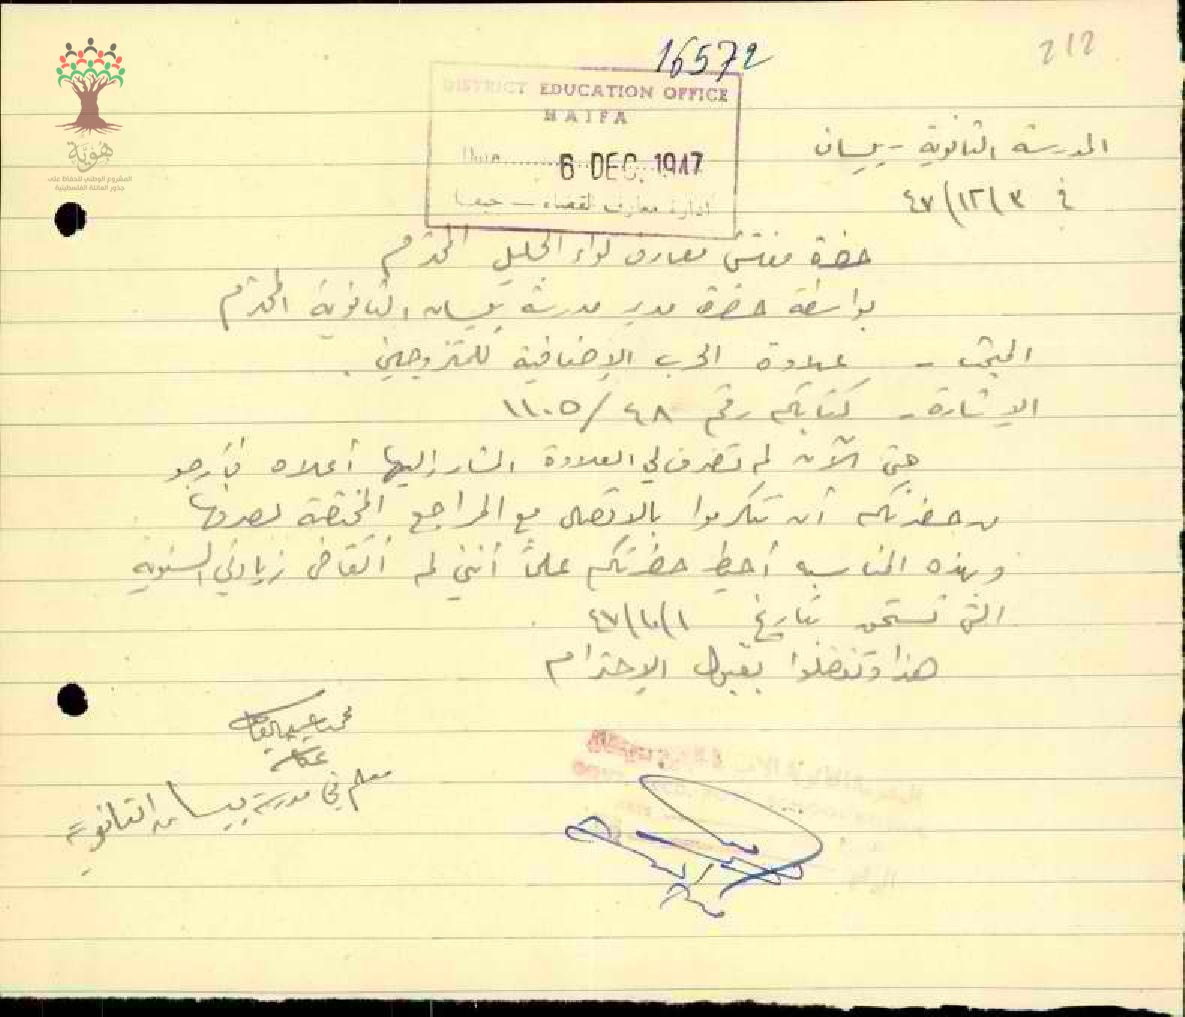 16572
212
هوية
المشروع الوطني للحفاظ على
جذور العائلة الفلسطينية
DISTRICT EDUCATION OFFICE
HAIFA
Date 6 DEC. 1947
ادارة معارف القضاء — حيفا
المدرسة الثانوية - بيسان
في ٣/١٢/٤٧
حضرة مفتش معارف لواء الجليل المحترم
بواسطة حضرة مدير مدرسة بيسان الثانوية المحترم
المبحث - علاوة الحرب الإضافية للمتزوجين.
الإشارة - كتابكم رقم ٤٨/١١٠٥
حتى الآن لم تصرف لي العلاوة المشار إليها أعلاه فأرجو
من حضرتكم أن تتكرموا بالاتصال مع المراجع المختصة لصرفها
وبهذه المناسبة أحيط حضرتكم علماً أنني لم أتقاض زيادتي السنوية
التي تستحق بتاريخ ٤٧/١٠/١.
هذا وتفضلوا بقبول الاحترام
معلم في مدرسة بيسان الثانوية